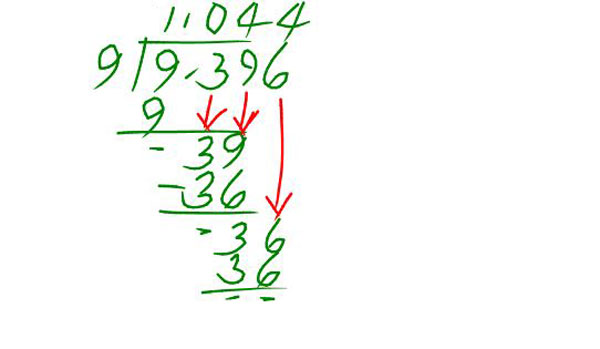 1.044
9)9.396
9
- 39
-36
- 36
36
- -